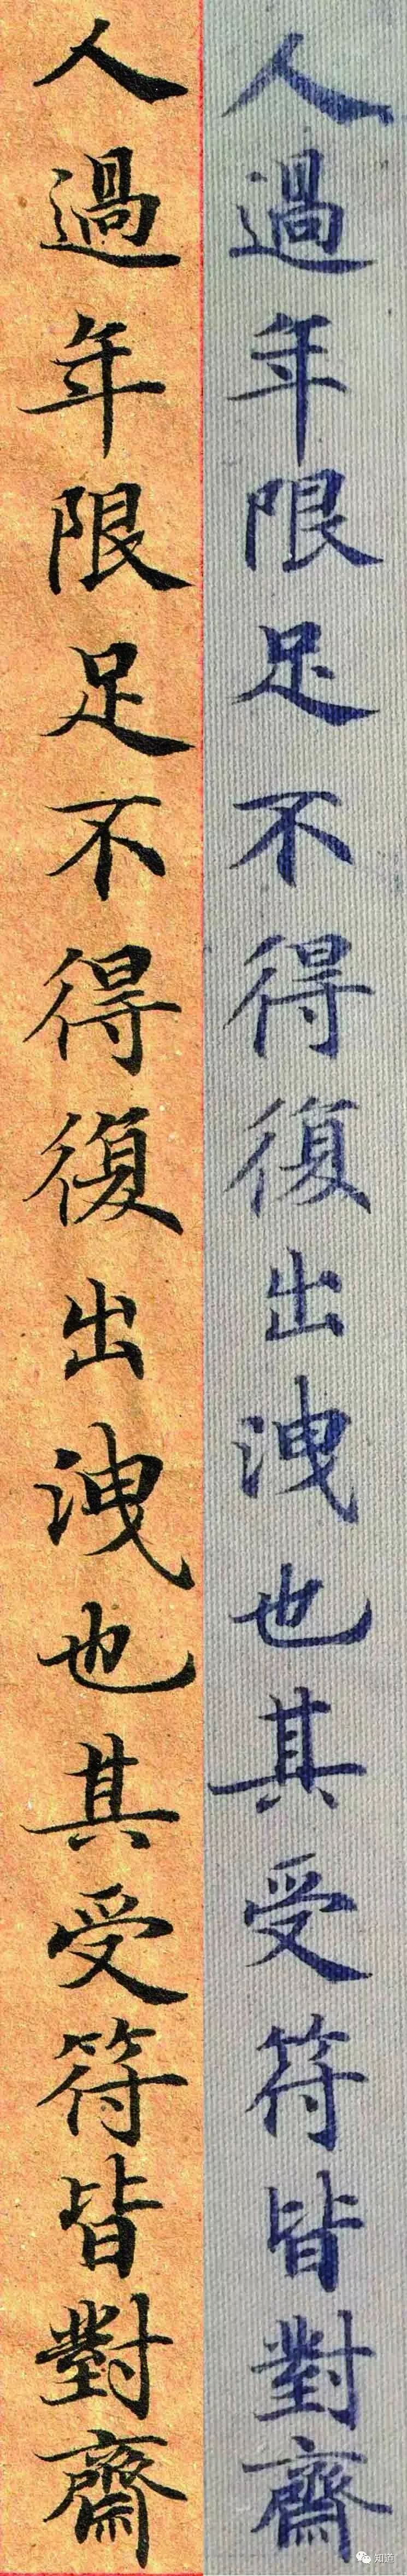 人過年限足不得復出洩也其受符皆對齋
人過年限足不得復出洩也其受符皆對齋
知道